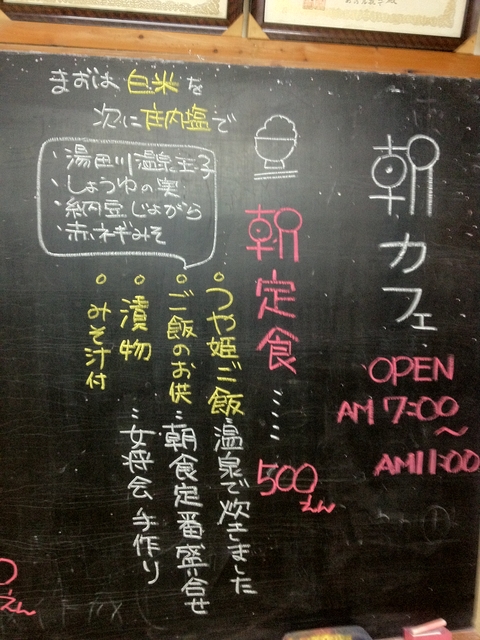 朝カフェ
OPEN
AM 7:00
〜
AM11:00
朝定食…… 500えん
まずは 白米を
次に 庄内塩で
・湯田川温泉玉子
・しょうゆの実
・納豆じょがら
・赤ネギみそ
○つや姫ご飯…温泉で炊きました
○ご飯のお供…朝食定番盛り合せ
○漬物…女将会 手作り
○みそ汁付
えん